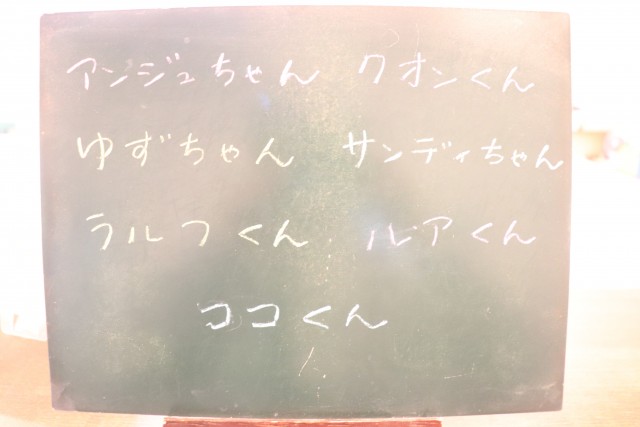 アンジュちゃん クオンくん
ゆずちゃん サンディちゃん
ラルフくん ルアくん
ココくん